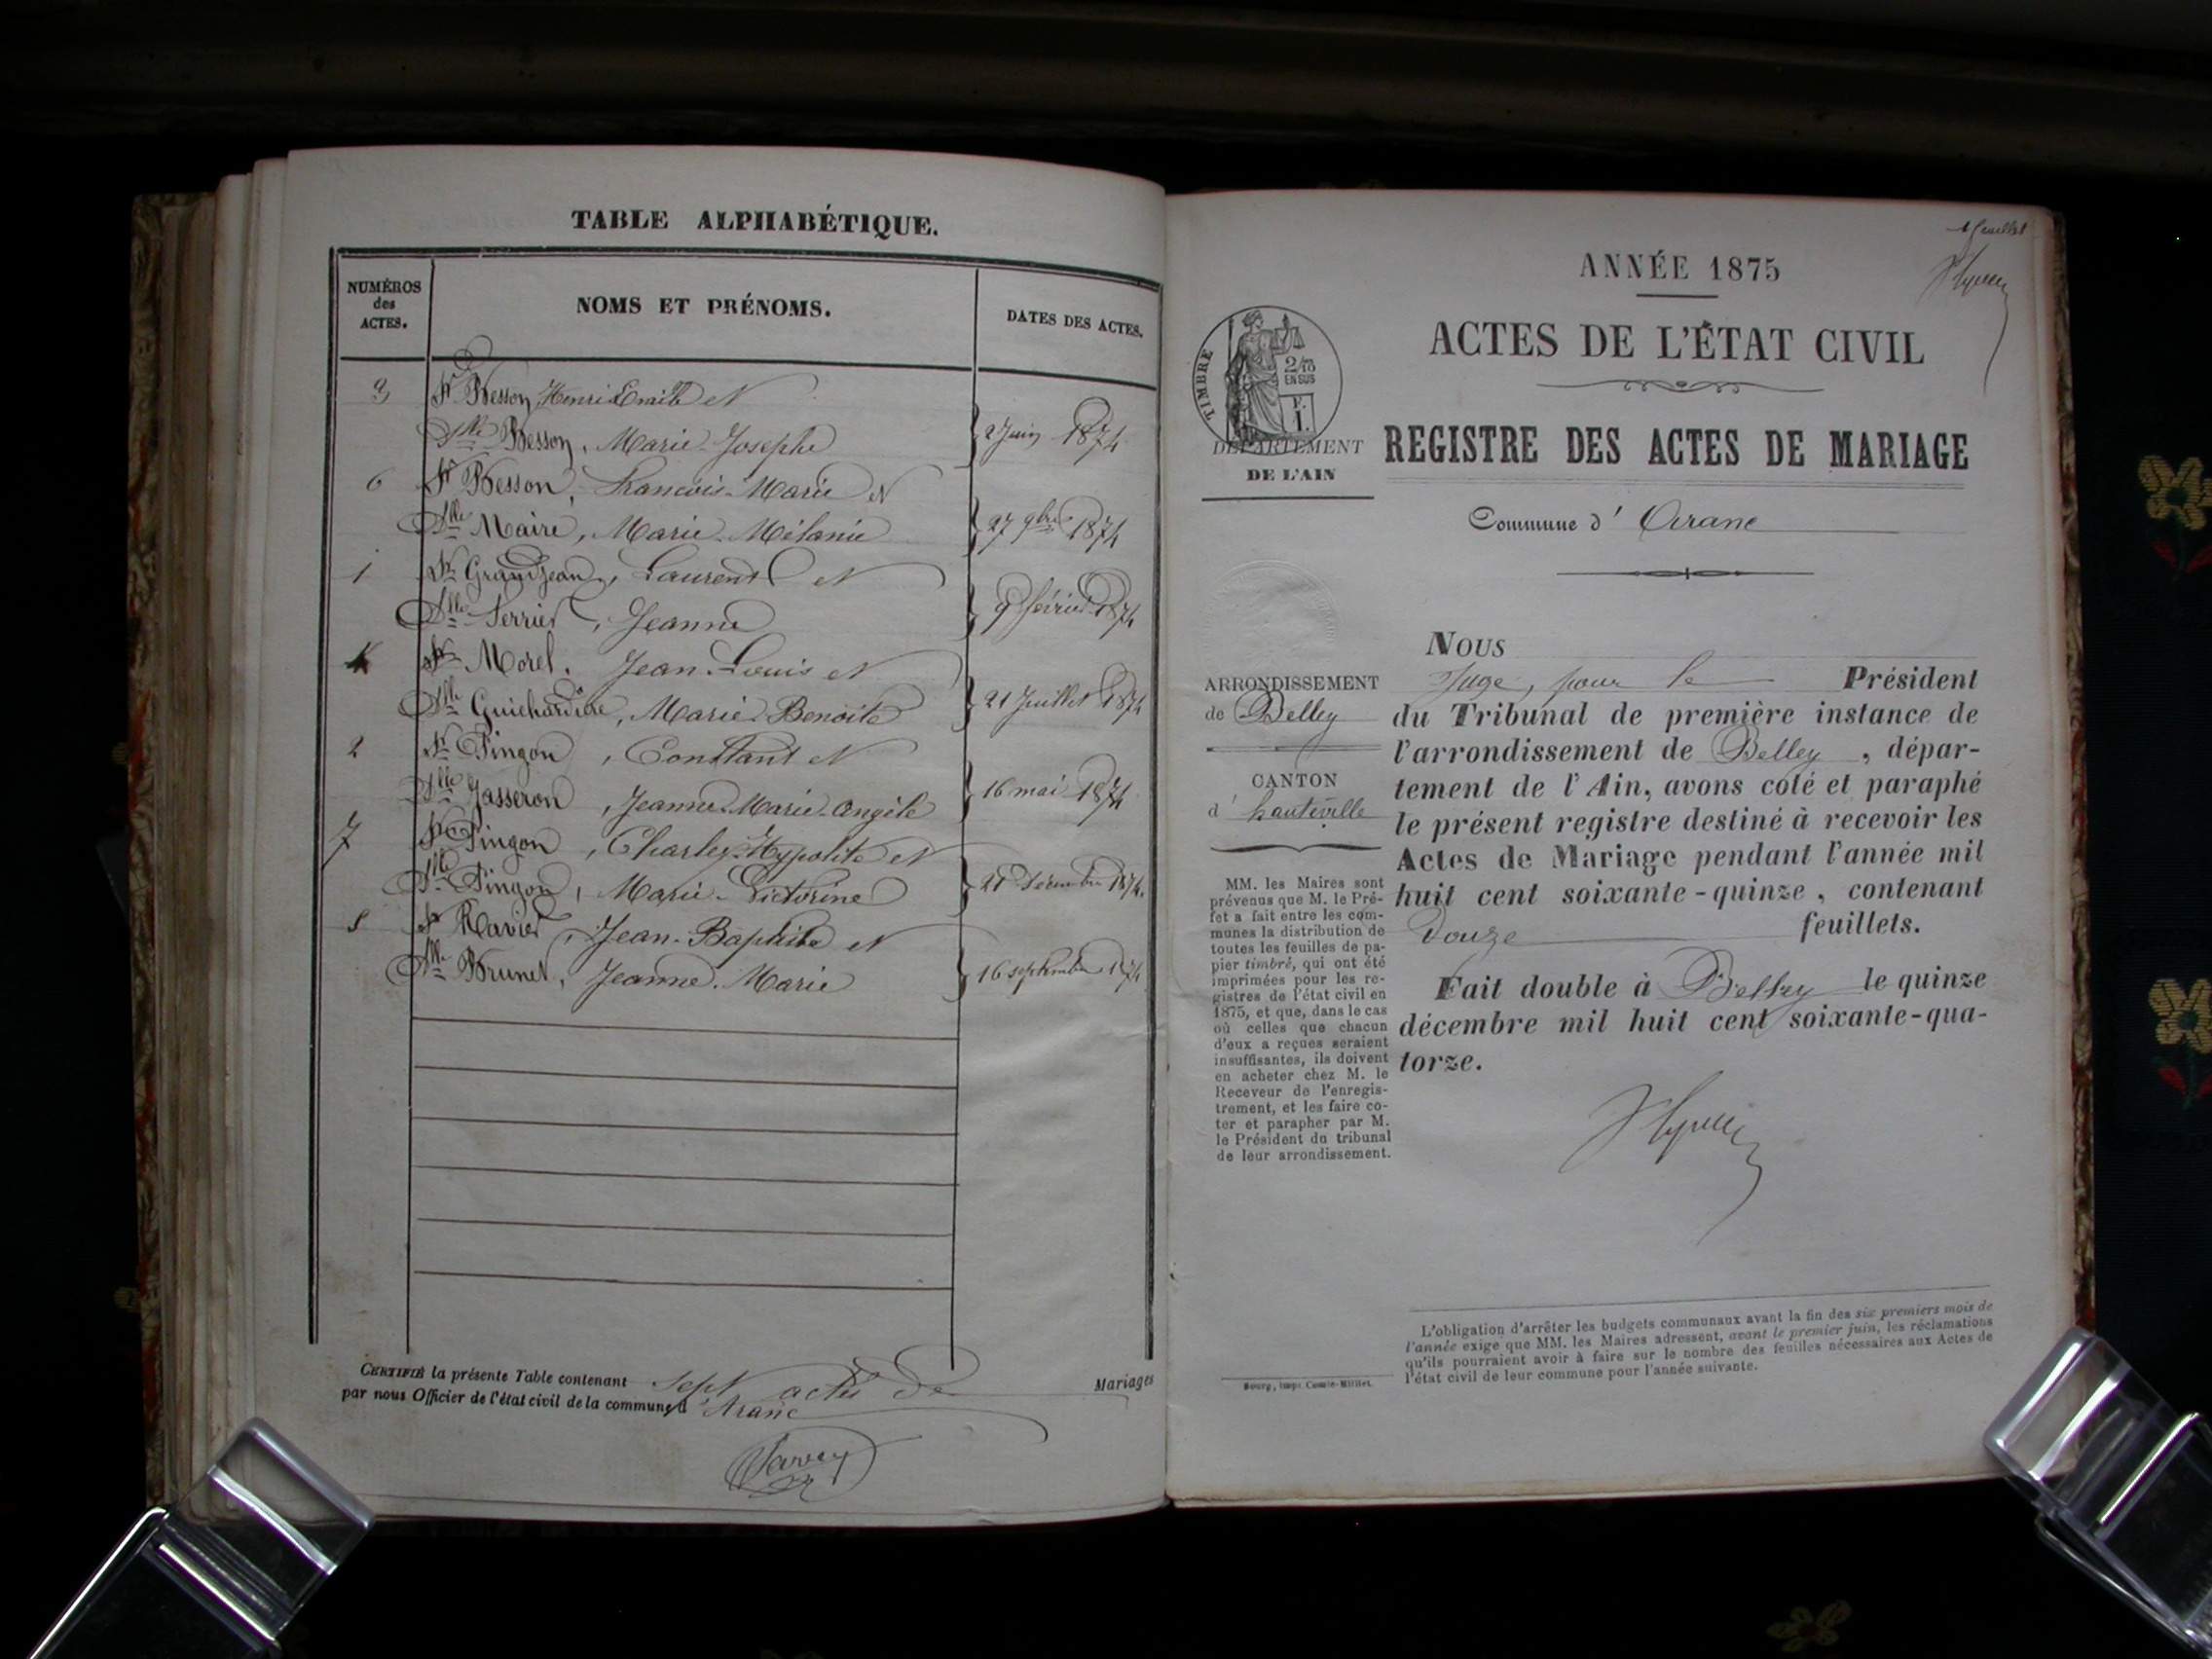 TABLE ALPHABÉTIQUE.
NUMÉROS
des
ACTES.
NOMS ET PRÉNOMS.
DATES DES ACTES.
3 Sr Besson Henri Emile et
Dlle Besson, Marie Josephe 2 Juin 1874
6 Sr Besson, francois-Marie et
Dlle Maire, Marie-Mélanie 27 9bre 1874
1 Sr Grandjean, Laurent et
Dlle Serrier, Jeanne 9 février 1874
4 Sr Morel, Jean-Louis et
Dlle Guichardière, Marie Benoite 21 Juillet 1874
2 Sr Pingon, Constant et
Dlle Jasseron, Jeanne-Marie-angèle 16 mai 1874
7 Sr Pingon, Charles-Hypolite et
Dlle Pingon, Marie-Victorine 21 décembre 1874.
5 Sr Ravier, Jean-Baptiste et
Dlle Brunet, Jeanne-Marie 16 septembre 1874
CERTIFIÉ la présente Table contenant sept actes de Mariages
par nous Officier de l'état civil de la commune d'Aranc
1 feuillet
ANNÉE 1875
ACTES DE L'ÉTAT CIVIL
TIMBRE
2/10
EN SUS
F.
1.
DÉPARTEMENT
DE L'AIN
REGISTRE DES ACTES DE MARIAGE
Commune d' Aranc
ARRONDISSEMENT
de Belley
CANTON
d' hauteville
MM. les Maires sont
prévenus que M. le Pré-
fet a fait entre les com-
munes la distribution de
toutes les feuilles de pa-
pier timbré, qui ont été
imprimées pour les re-
gistres de l'état civil en
1875, et que, dans le cas
où celles que chacun
d'eux a reçues seraient
insuffisantes, ils doivent
en acheter chez M. le
Receveur de l'enregis-
trement, et les faire co-
ter et parapher par M.
le Président du tribunal
de leur arrondissement.
NOUS
Juge, pour le Président
du Tribunal de première instance de
l'arrondissement de Belley, dépar-
tement de l'Ain, avons coté et paraphé
le présent registre destiné à recevoir les
Actes de Mariage pendant l'année mil
huit cent soixante-quinze, contenant
Douze feuillets.
Fait double à Belley le quinze
décembre mil huit cent soixante-qua-
torze.
L'obligation d'arrêter les budgets communaux avant la fin des six premiers mois de
l'année exige que MM. les Maires adressent, avant le premier juin, les réclamations
qu'ils pourraient avoir à faire sur le nombre des feuilles nécessaires aux Actes de
l'état civil de leur commune pour l'année suivante.
Bourg, impr. Comte-Milliet.